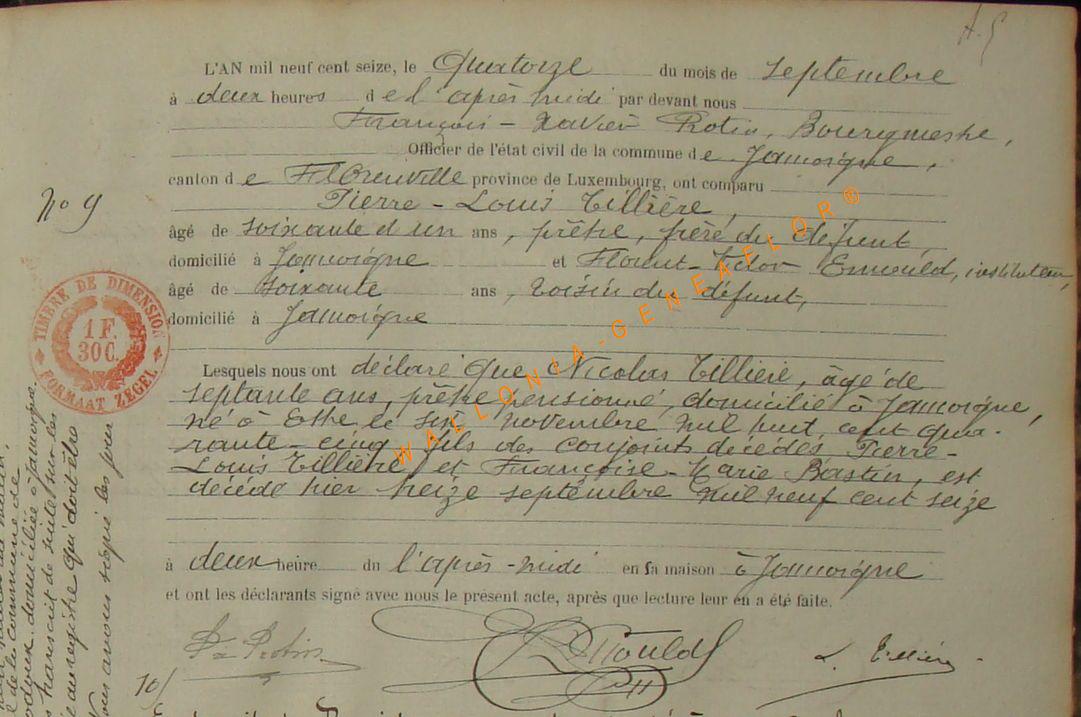 A. S
L'AN mil neuf cent seize, le Quatorze du mois de septembre
à deux heures de l'après midi par devant nous
François-Xavier Rotin, Bourgmestre,
Officier de l'état civil de la commune de Jamoigne,
canton de Florenville province de Luxembourg, ont comparu
No 9
Pierre-Louis Tillière,
âgé de soixante et un ans, prêtre, frère du défunt,
domicilié à Jamoigne et Florent- Emould, instituteur,
âgé de soixante ans, voisin du défunt,
domicilié à Jamoigne
TIMBRE DE DIMENSION
1 F.
30 C.
FORMAAT ZEGEL
WALLONIA-GENEAFLOR®
Lesquels nous ont déclaré que Nicolas Tillière, âgé de
septante ans, prêtre pensionné, domicilié à Jamoigne,
né à Ethe, le six novembre mil huit cent qua-
rante-cinq, fils des conjoints décédés Pierre-
Louis Tillière et Françoise-Marie Bastin, est
décédé hier treize septembre mil neuf cent seize
à deux heure du l'après-midi en sa maison à Jamoigne
et ont les déclarants signé avec nous le présent acte, après que lecture leur en a été faite.
L. Tillière
10/
de la commune de
domiciliée à Jamoigne
transcrit de suite sur les
registre qui doit être
Nous avons signé les jour